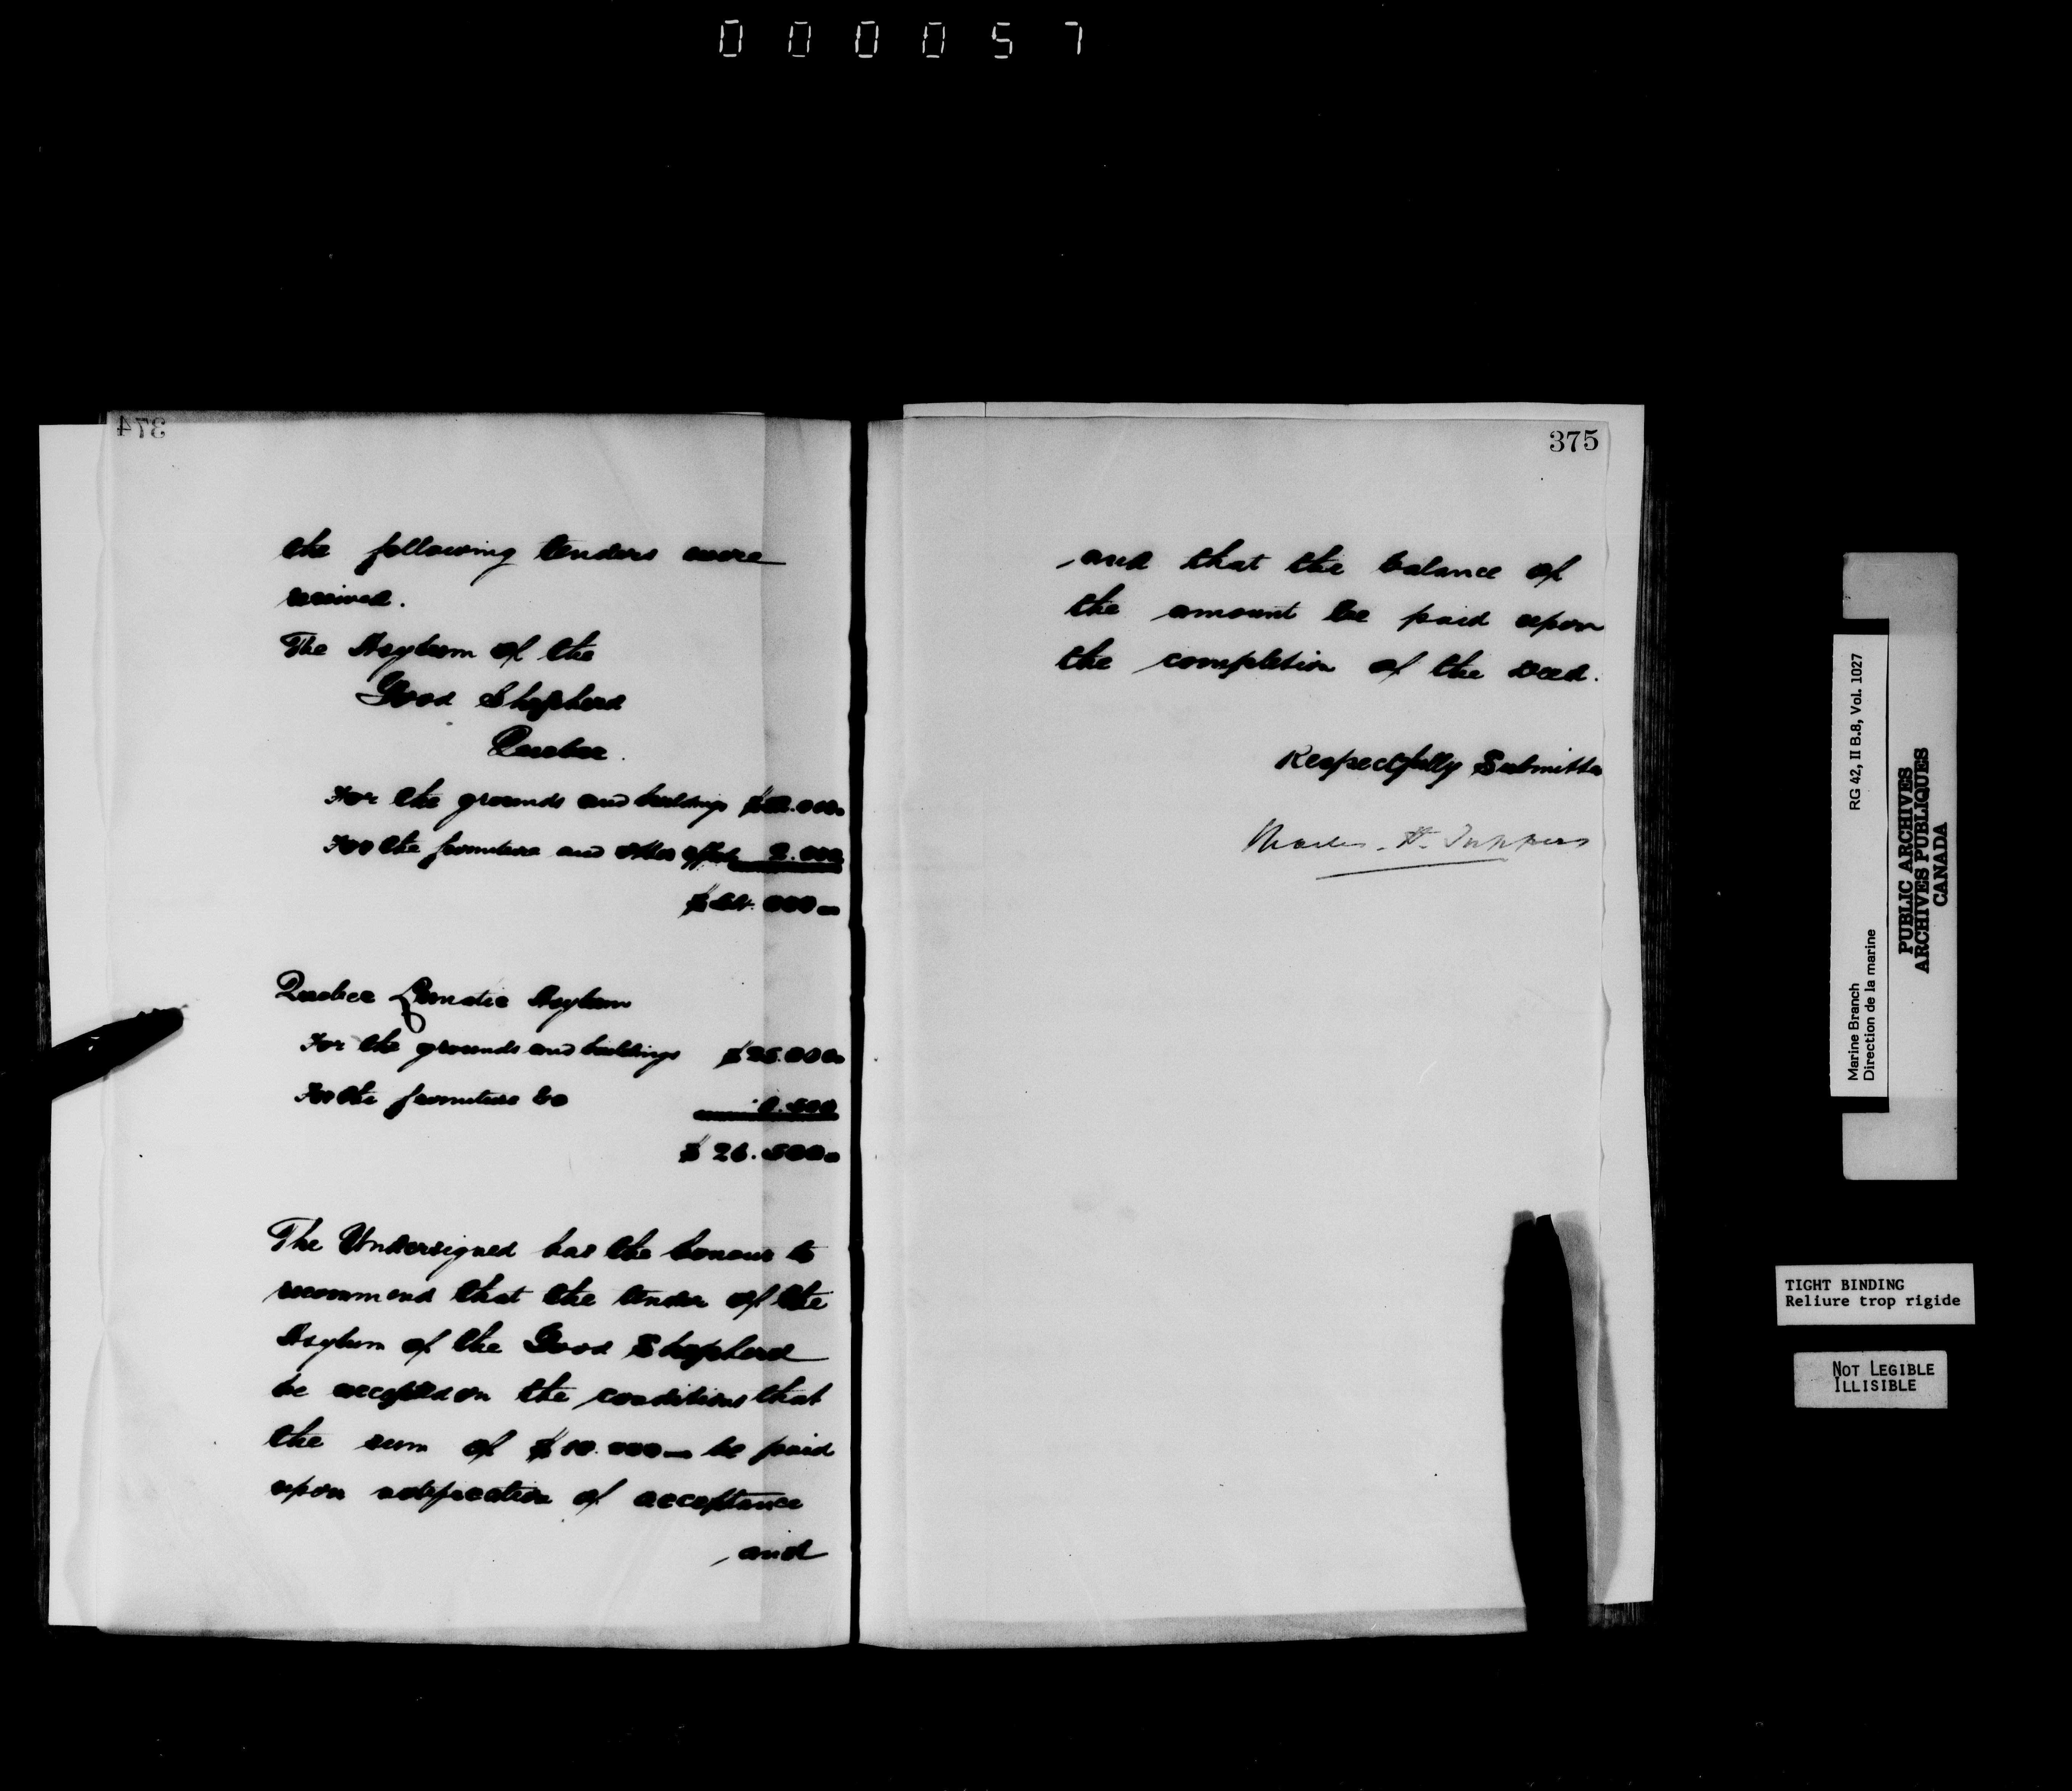 000057
374
the following tenders were
received.
The Asylum of the
Good Shepherd
Quebec.
For the grounds and buildings
For the furniture and other effects 2.000
000
Quebec Lunatic Asylum
For the grounds and buildings $25.000
For the furniture &c 1.500
$26.500
The Undersigned has the honour to
recommend that the tender of the
Asylum of the Good Shepherd
be accepted on the conditions that
the sum of $10.000 be paid
upon notification of acceptance
and
375
and that the balance of
the amount be paid upon
the completion of the Deed.
Respectfully Submitted
Charles H. Tupper
Marine Branch RG 42, II B.8, Vol. 1027
Direction de la marine
PUBLIC ARCHIVES
ARCHIVES PUBLIQUES
CANADA
TIGHT BINDING
Reliure trop rigide
NOT LEGIBLE
ILLISIBLE